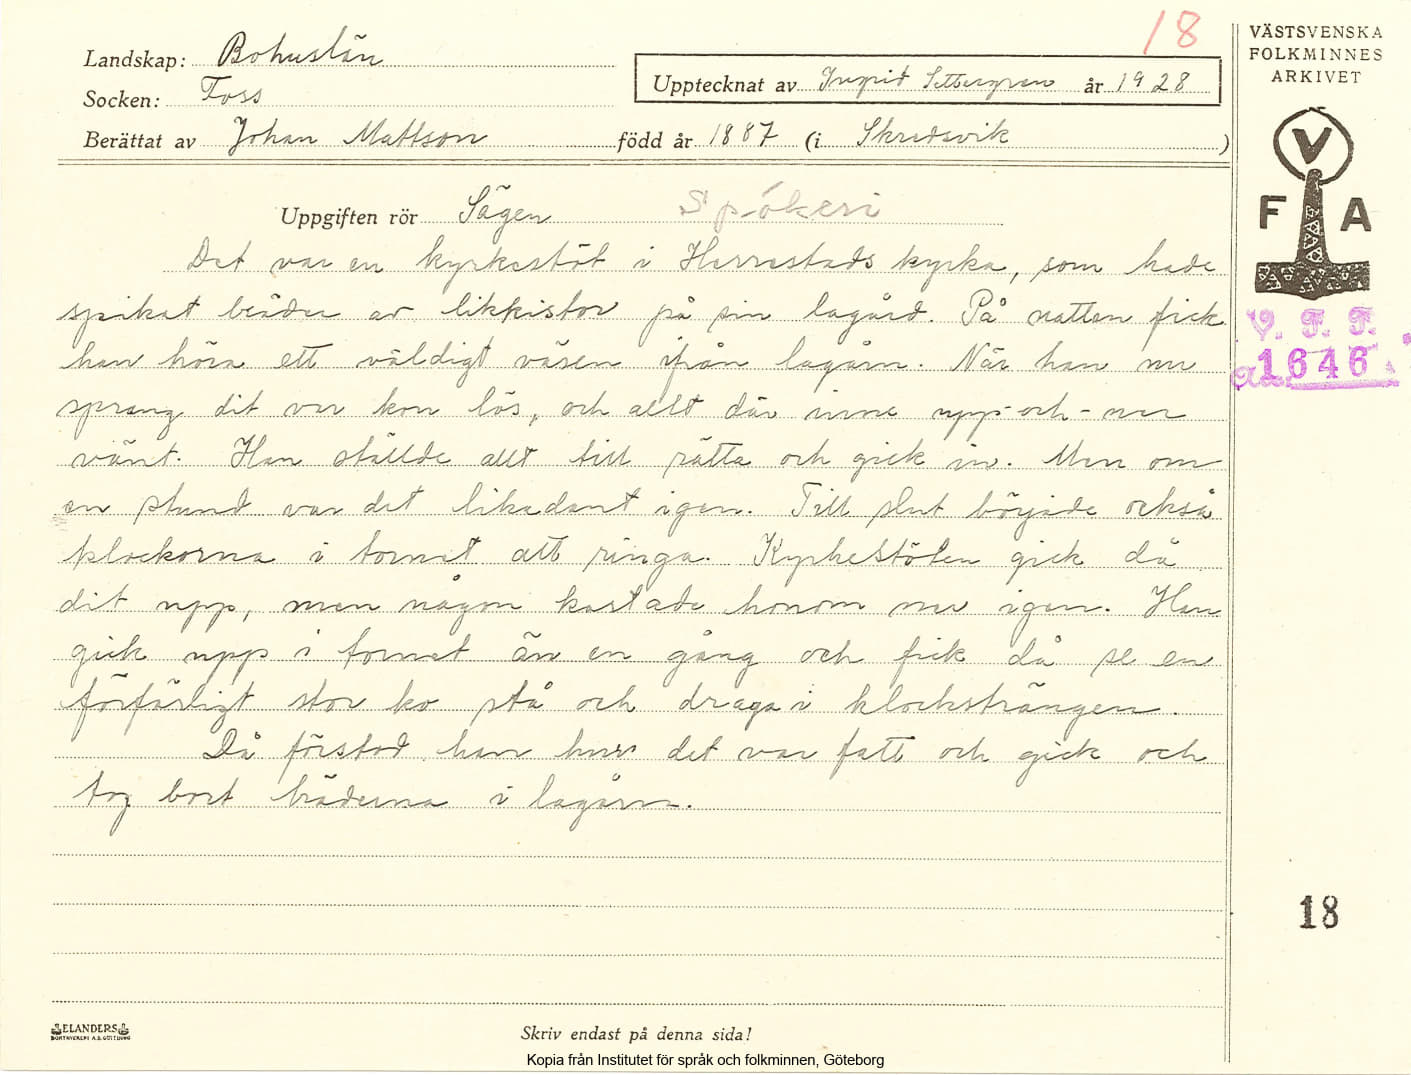 18
Landskap: Bohuslän
Socken: Foss
Upptecknat av Ingrid Settergren år 1928
Berättat av Johan Mattson född år 1887 (i Skredsvik)
Uppgiften rör Sägen Spökeri
Det var en kyrkestöt i Herrestads kyrka, som hade
spikat bräder av likkistor på sin lagård. På natten fick
han höra ett väldigt väsen ifrån lagårn. När han nu
sprang dit var kon lös, och allt där inne upp-och-ner
vänt. Han ställde allt till rätta och gick in. Men om
en stund var det likadant igen. Till slut började också
klockorna i tornet att ringa. Kyrkestöten gick då
dit upp, men någon kastade honom ner igen. Han
gick upp i tornet än en gång och fick då se en
förfärligt stor ko stå och draga i klocksträngen.
Då förstod han hur det var fatt och gick och
tog bort bräderna i lagårn.
VÄSTSVENSKA
FOLKMINNES
ARKIVET
V
F A
V. F. F.
1646
18
ELANDERS
BOKTRYCKERI A.B. GÖTEBORG
Skriv endast på denna sida!
Kopia från Institutet för språk och folkminnen, Göteborg